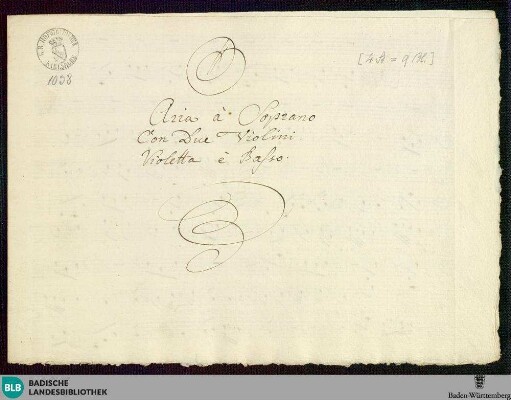 1038
[4 St = 9 Bl.]
Aria à Soprano
Con Due Violini
Violetta è Basso.
BLB BADISCHE
LANDESBIBLIOTHEK
Baden-Württemberg